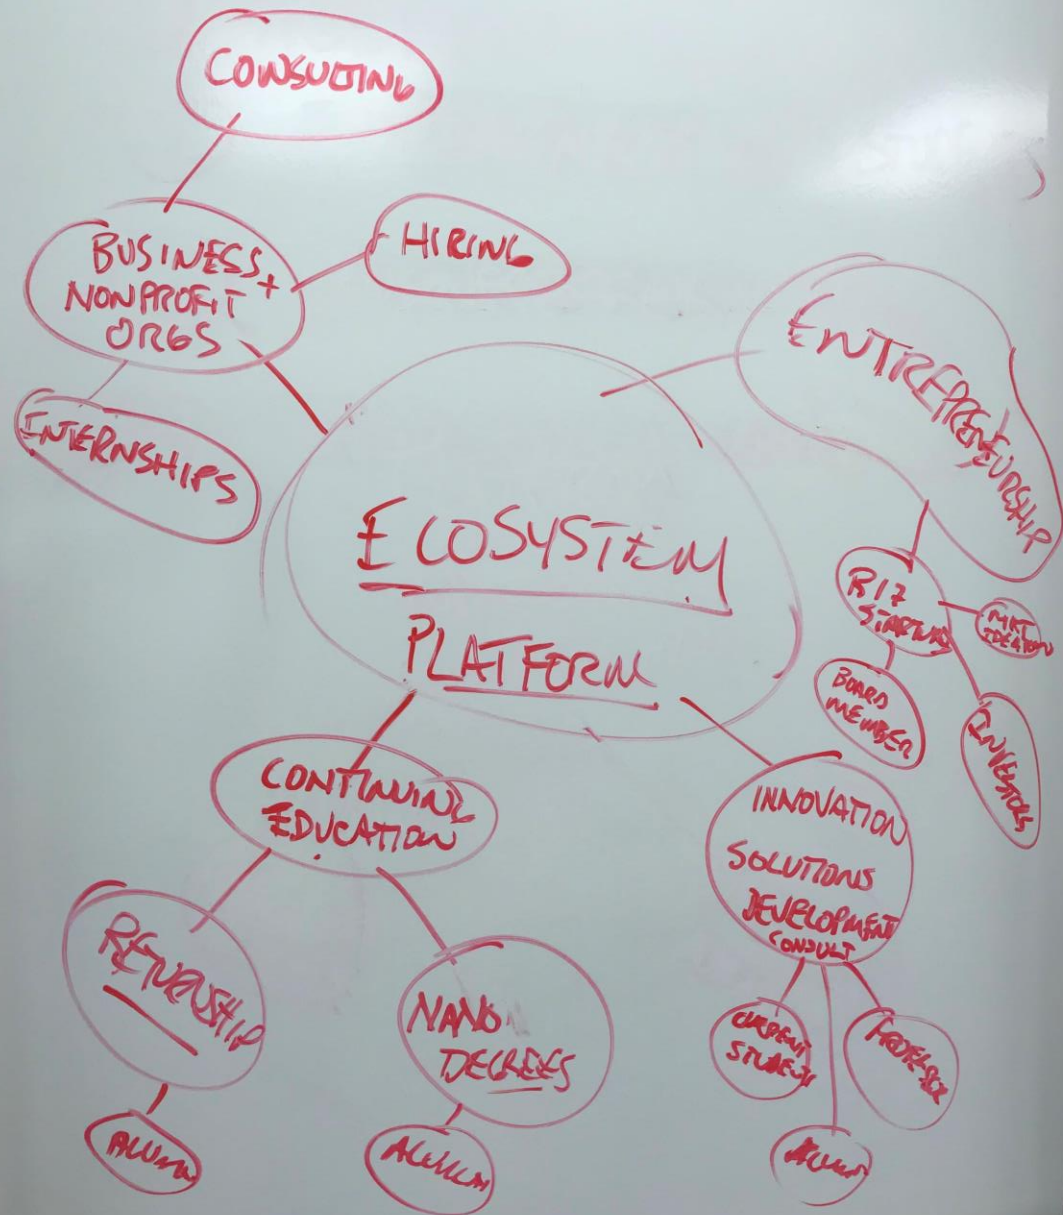 CONSULTING
HIRING
BUSINESS +
NONPROFIT
ORGS
INTERNSHIPS
ENTREPRENEURSHIP
ECOSYSTEM
PLATFORM
BOARD
MEMBER
INVESTORS
CONTINUING
EDUCATION
INNOVATION
SOLUTIONS
DEVELOPMENT
CONSULT
RETURNSHIP
NANO
DEGREES
CURRENT
STUDENTS
ALUMNI
ALUMNI
ALUMNI